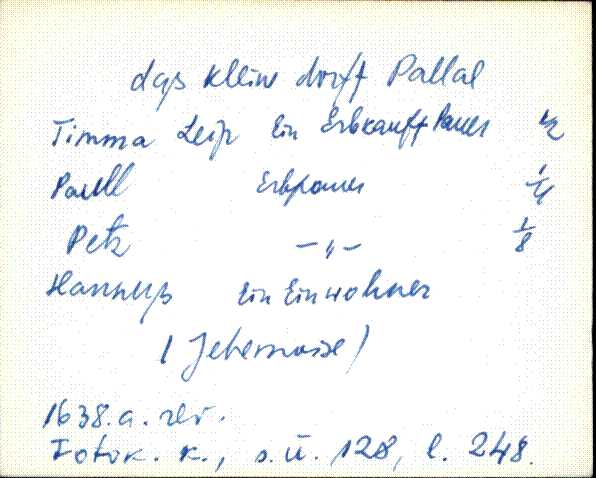 das kleine dorff Pallal
Timma Leip Ein Erbkauff Pauer 1/2
Paull Erbpauer 1/4
Petz —"— 1/8
Hannuß Ein Einwohner
(Jehernoise)
1638. a. rev.
Fotok. k., s.ü. 128, l. 248.